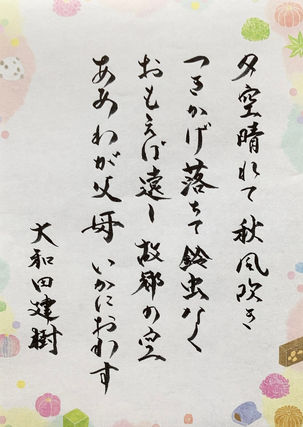 夕空晴れて秋風吹き
つきかげ落ちて鈴虫なく
おもえば遠し故郷の空
ああわが父母いかにおわす
大和田建樹